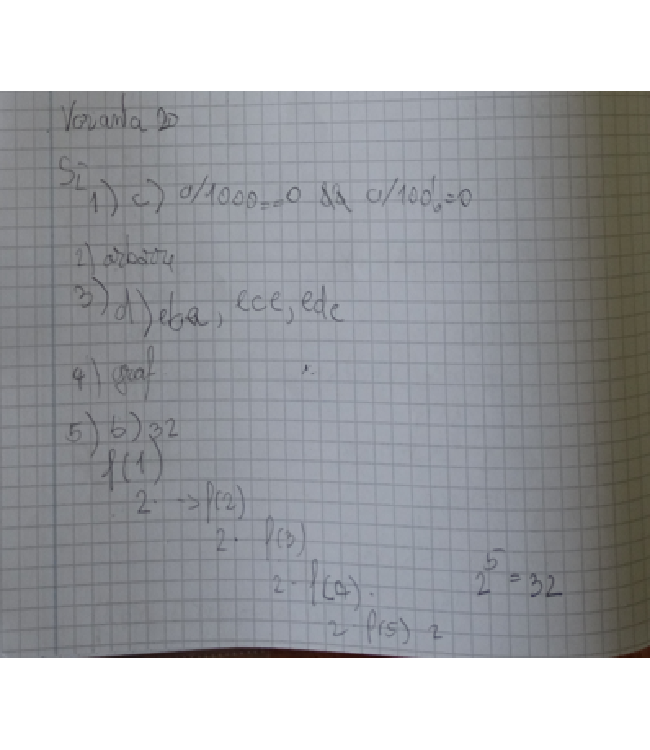 Varianta 20
SI
1) c) a/1000==0 && a/100!=0
2) arbori
3) d) eba, ece, edc
4) graf
5) b) 32
f(1)
2· -> f(2)
2· f(3)
2· f(4)·
2 f(5) 2
2^5 = 32